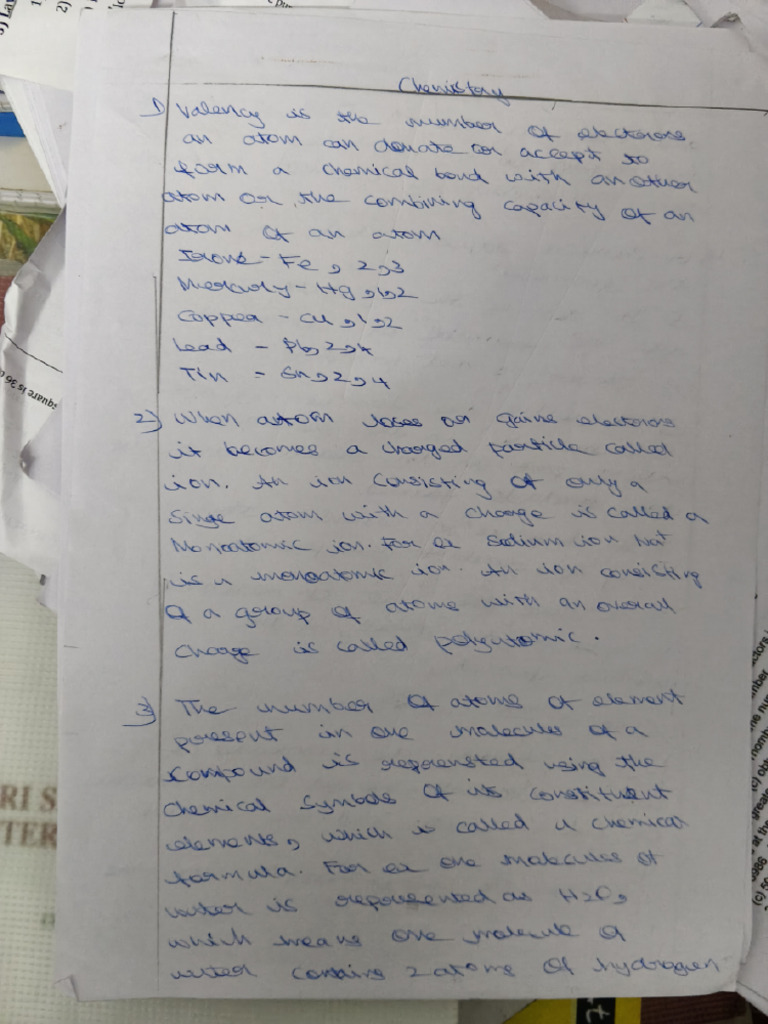 Chemistry
1) Valency is the number of electrons
an atom can donate or accept to
form a chemical bond with another
atom or the combining capacity of an
atom of an atom
Irone - Fe, 2,3
Mercury - Hg, 1,2
Copper - Cu, 1,2
Lead - Pb, 2,4
Tin - Sn, 2, 4
2) When atom loses or gains electrons
it becomes a charged particle called
ion. An ion consisting of only a
Singe atom with a charge is called a
Monoatomic ion. For ex Sodium ion Na+
is a monoatomic ion. An ion consisting
of a group of atoms with an overall
charge is called polyatomic.
3) The number of atoms of element
present in one molecule of a
Compound is represented using the
Chemical Symbols of its constituent
elements, which is called a chemical
formula. For ex one molecules of
water is represented as H2O,
which means one molecule of
water contains 2 atoms of hydrogen
RI S
TER
square is 36